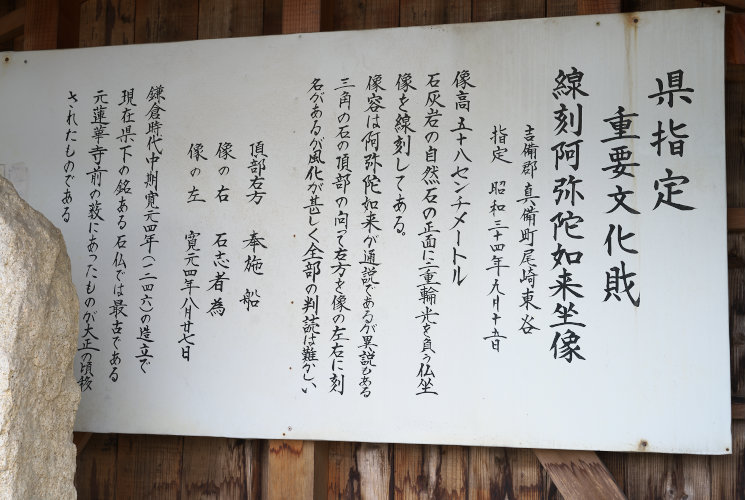 県指定
重要文化財
線刻阿弥陀如来坐像
吉備郡 真備町尾崎東谷
指定 昭和三十四年九月十五日
像高 五十八センチメートル
石灰岩の自然石の正面に二重輪光を負う仏坐
像を線刻してある。
像容は阿弥陀如来が通説であるが異説もある
三角の石の頂部の向って右方を像の左右に刻
名があるが風化が甚しく全部の判読は難かしい
頂部右方 奉施 船
像の右 石志者為
像の左 寛元四年八月廿七日
鎌倉時代中期寛元四年(一二四六)の造立で
現在県下の銘ある石仏では最古である
元蓮華寺前の薮にあったものが大正の頃移
されたものである